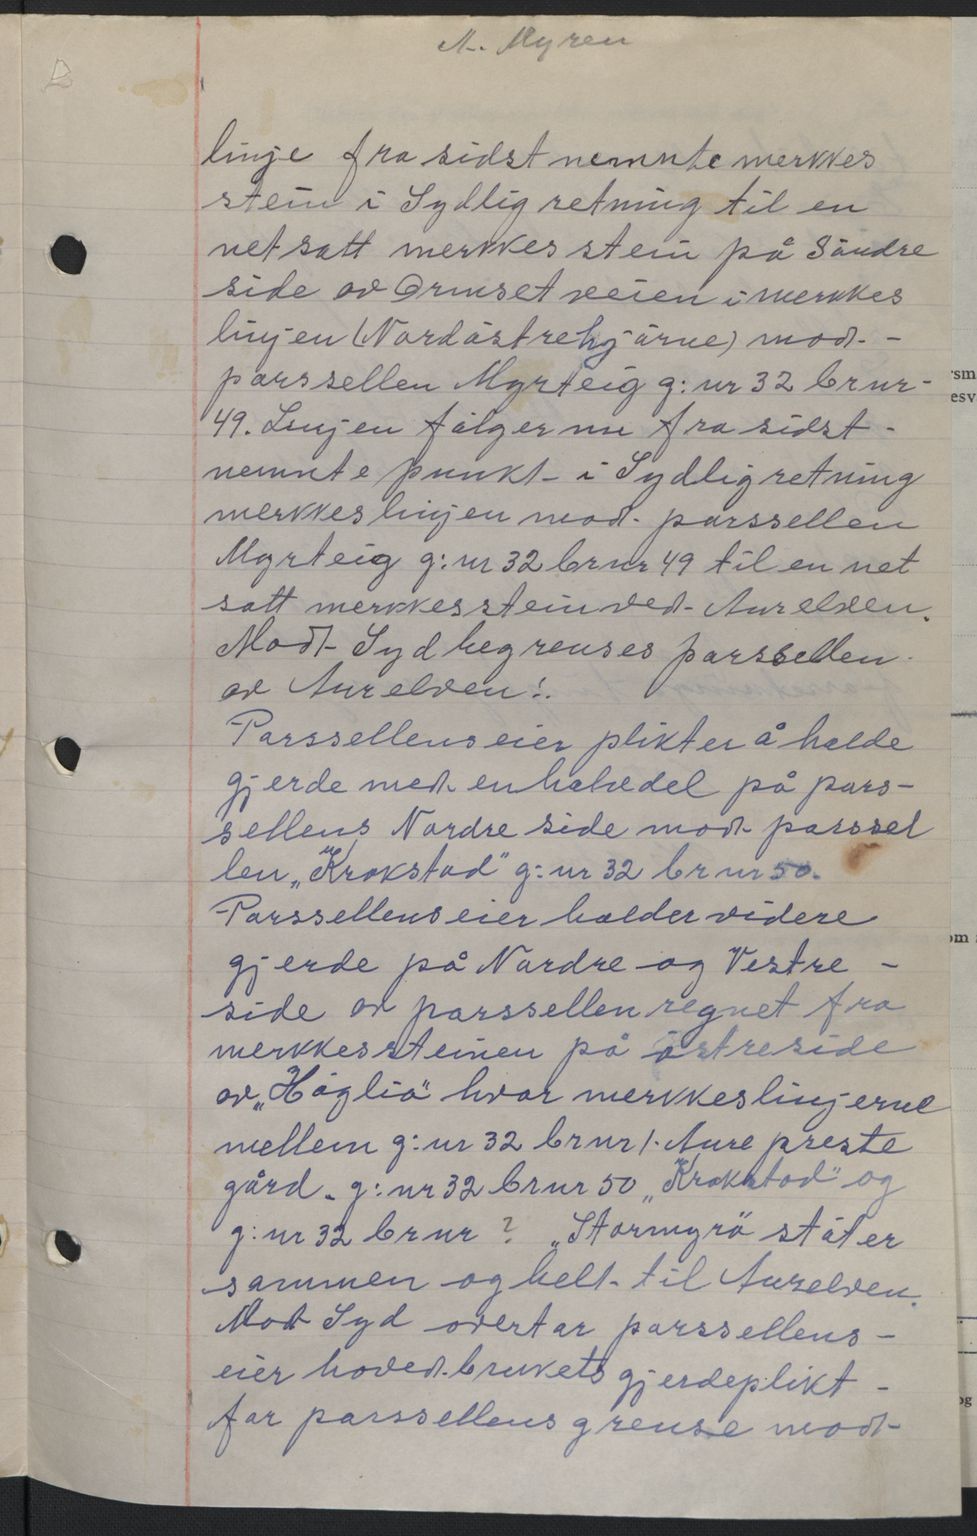 A. Myren
linje fra sidst nemnte merkkes
stein i Sydlig retning til en
netsatt merkkesstein på Søndre
side av Ormset veien i merkkes
linjen (Nordøstre hjørne) mod-
parssellen Myrteig g:nr 32 brnr-
49. Linjen følger nu fra sidst-
nemnte punkt i Sydlig retning
merkkeslinjen mod parssellen
Myrteig g:nr 32 brnr 49 til en net
satt merkkesstein ved Aurelven.
Modt Syd begrenses parssellen
av Aurelven!.
Parssellens eier plikter å holde
gjerde med en halvdel på pars-
sellens Nordre side modt parssel
len „Krokstad" g:nr 32 brnr 50.
Parssellens eier holder videre
gjerde på Nordre og Vestre -
side av parssellen regnet fra
merkkessteinen på østre side
av „Høglia" hvor merkkeslinjerne
mellem g:nr 32 brnr 1. Aure preste
gård. g:nr 32 brnr 50 „Krokstad" og
g:nr 32 brnr ? „Stormyra" støter
sammen og helt til Aurelven.
Mot Syd overtar parssellens -
eier hovedbrukets gjerdeplikt -
for parssellens grense modt